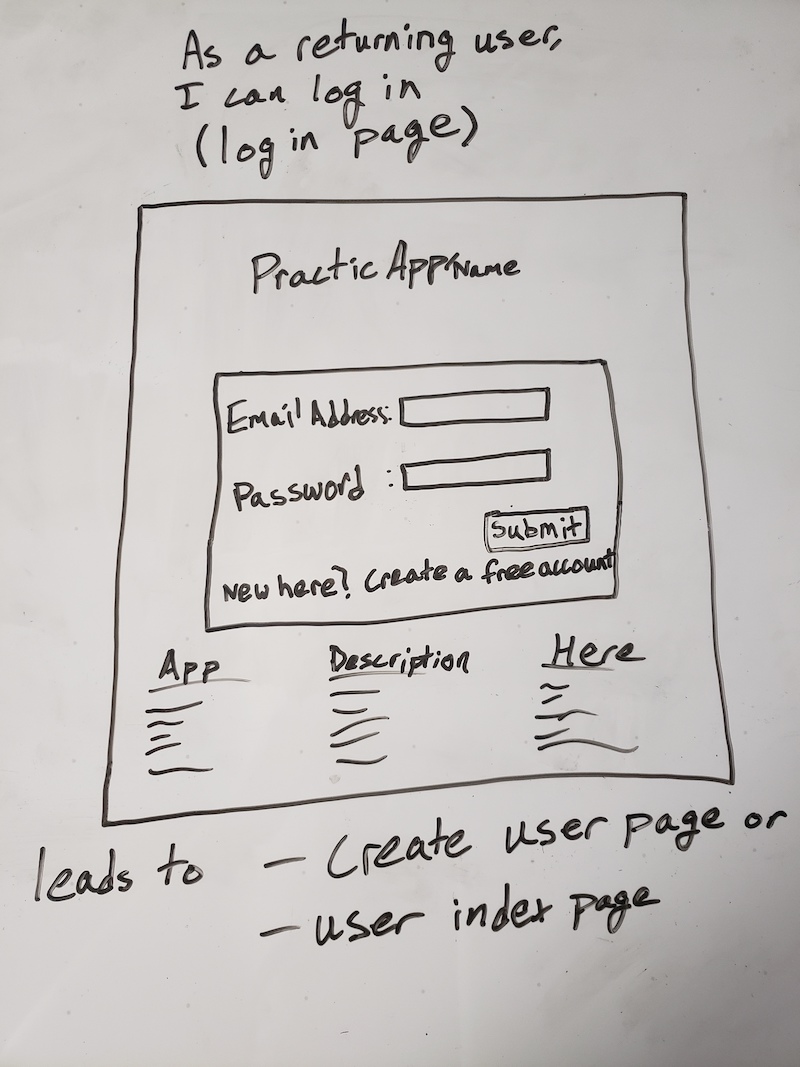 As a returning user,
I can log in
(log in page)
Practic App/Name
Email Address:
Password :
Submit
New here? Create a free account
App Description Here
leads to - Create user page or
- user index page